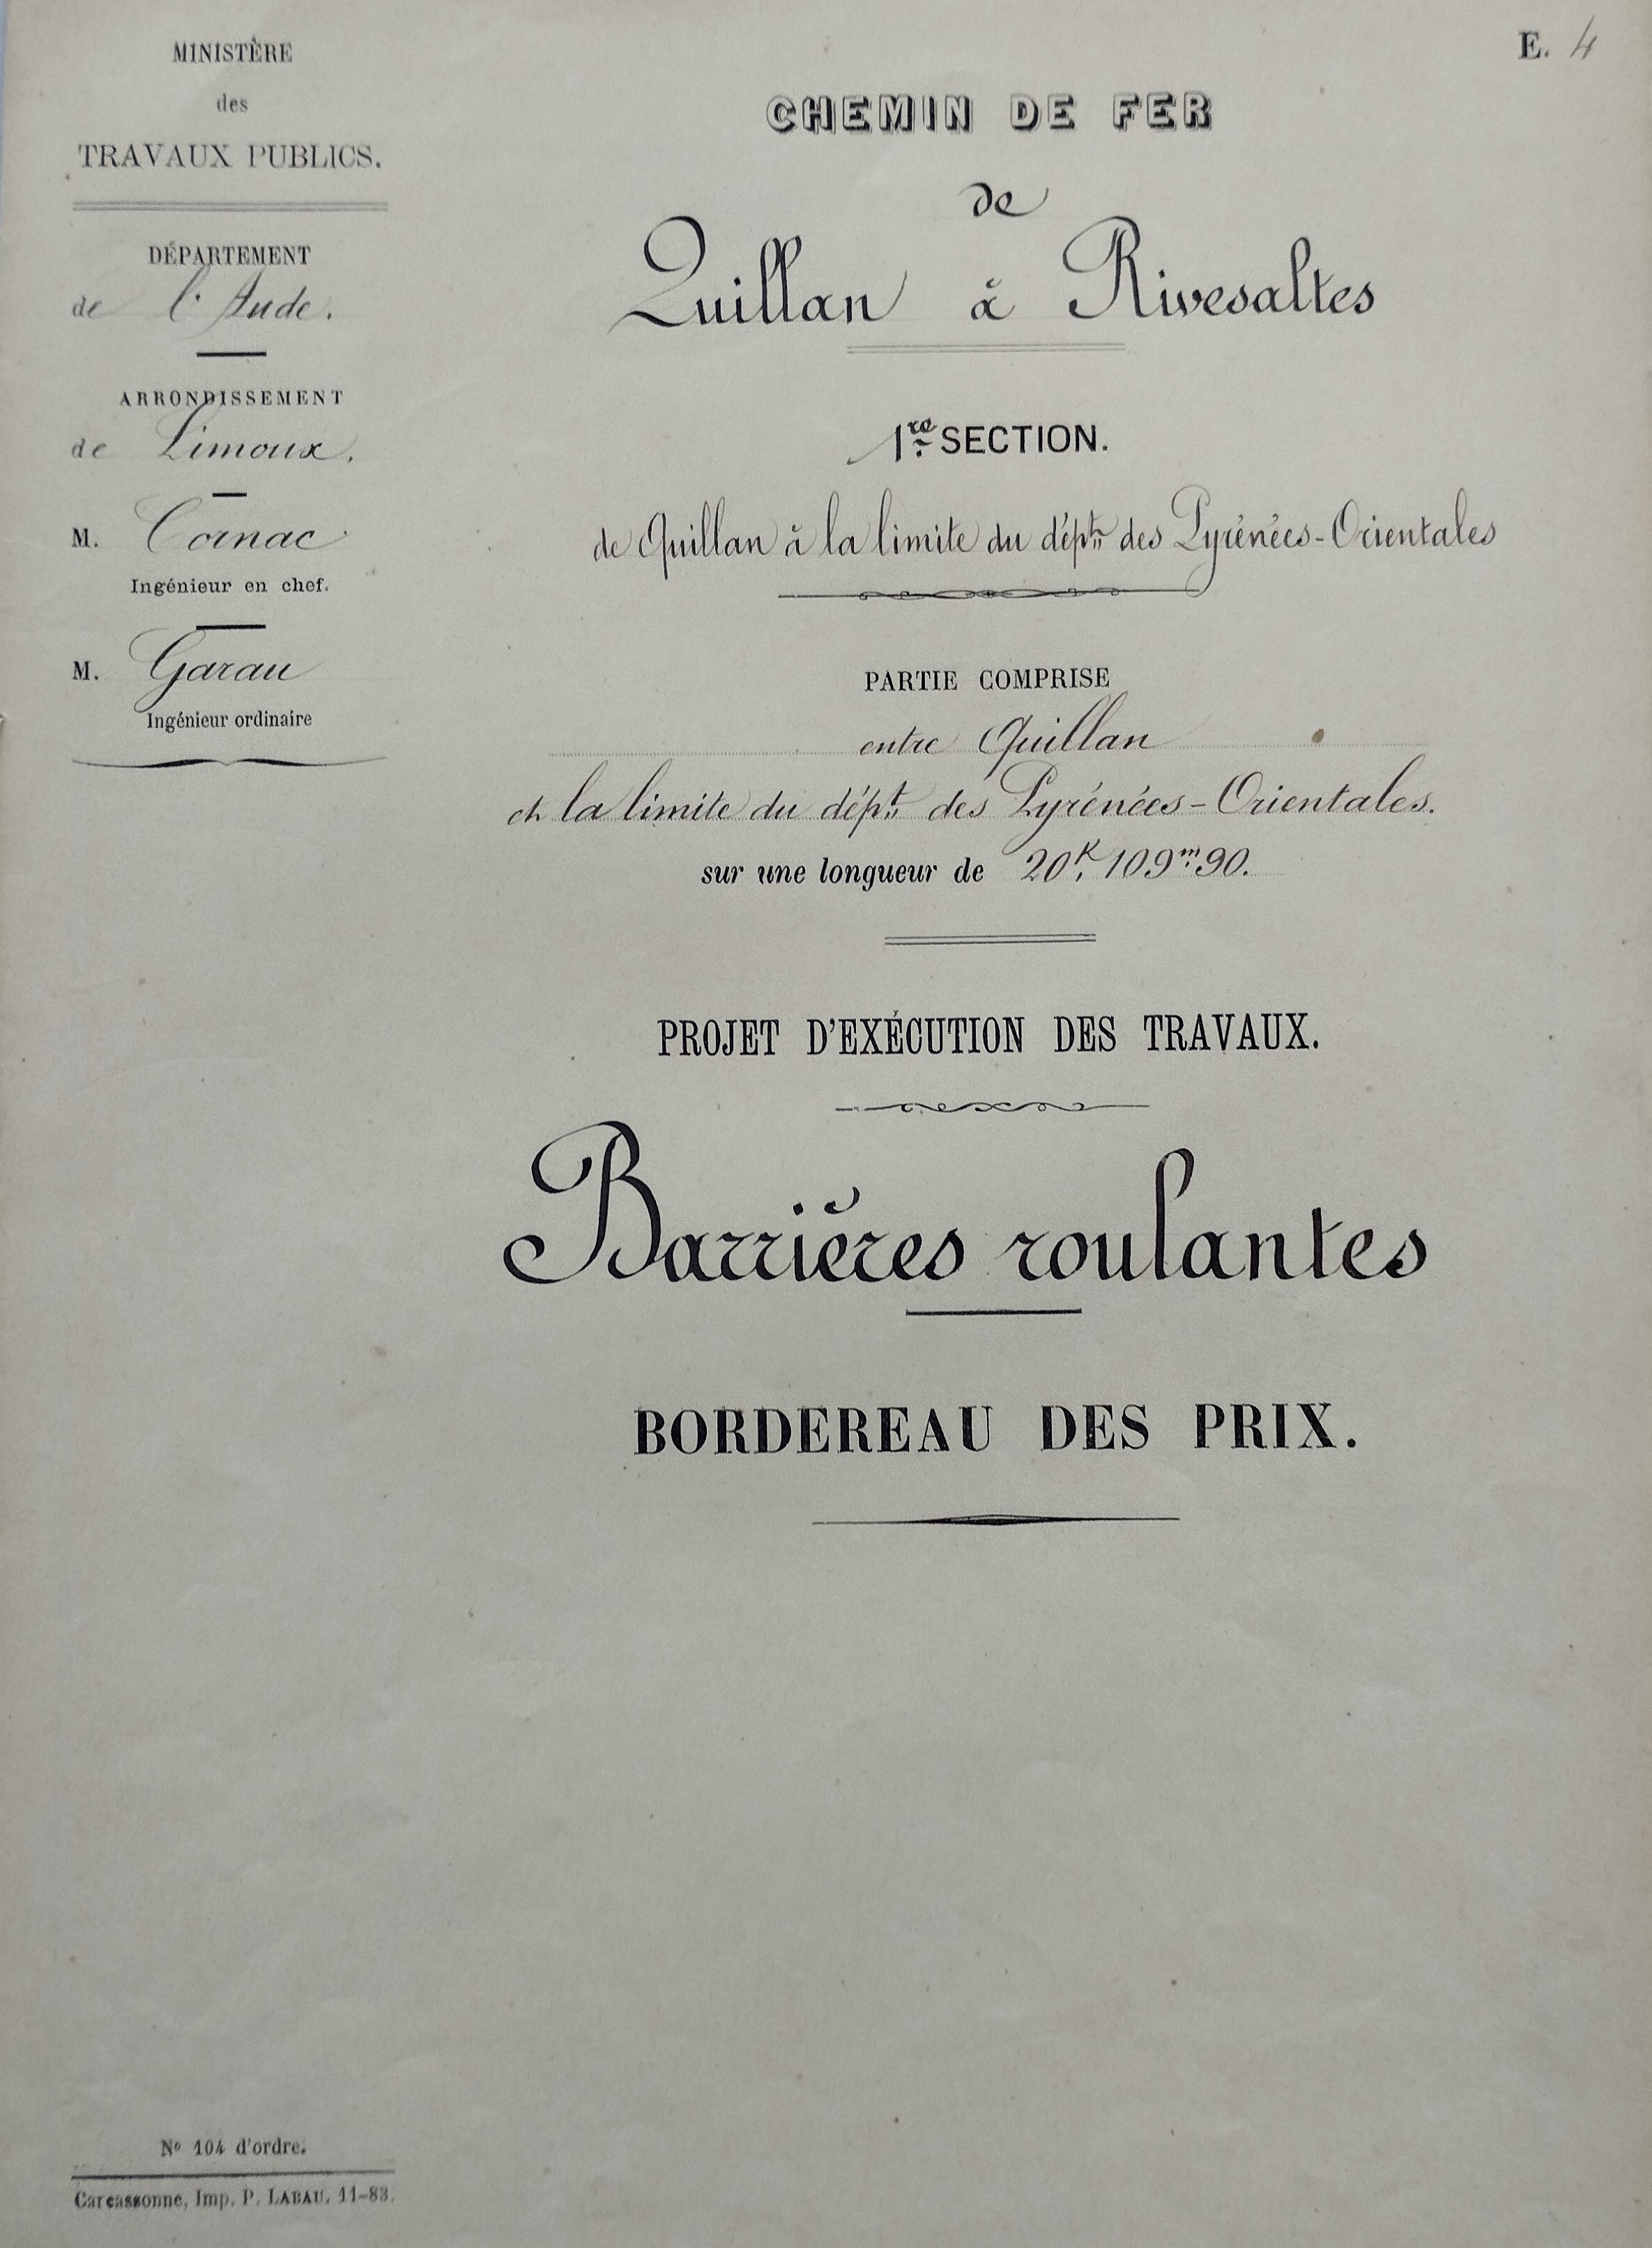 MINISTÈRE
des
TRAVAUX PUBLICS.
DÉPARTEMENT
de l'Aude.
ARRONDISSEMENT
de Limoux.
M. Cornac
Ingénieur en chef.
M. Garau
Ingénieur ordinaire
E. 4
CHEMIN DE FER
de
Quillan à Rivesaltes
1re SECTION.
de Quillan à la limite du dépt. des Pyrénées-Orientales
PARTIE COMPRISE
entre Quillan
et la limite du dépt. des Pyrénées-Orientales.
sur une longueur de 20K,109m90.
PROJET D'EXÉCUTION DES TRAVAUX.
Barrières roulantes
BORDEREAU DES PRIX.
No 104 d'ordre.
Carcassonne, Imp. P. LABAU. 11-83.